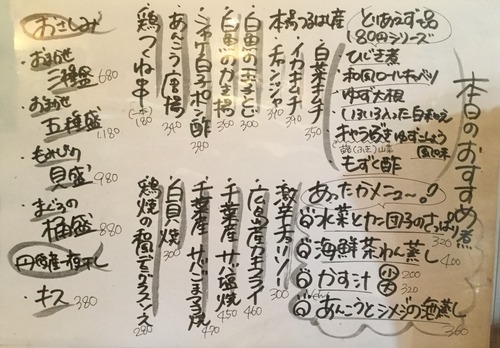 本日のおすすめ
とりあえず一品
180円シリーズ
ひじき煮
和風ロールキャベツ
ゆず大根
いろいろ入った白和え
キャラぶきゆずこしょう
風味
もずく酢
本場つるは産
白菜キムチ 350
イカキムチ 390
チャンジャ 340
白魚の玉子とじ 300
白魚のかき揚 360
シャケ白子ポン酢 280
あんこう唐揚 340
鶏つくね串 (一本) 180
おさしみ
・おまかせ
三種盛 680
・おまかせ
五種盛 1,180
・もみじり
貝盛 980
・まぐろの
桶盛 880
・キス 380
あったかメニュー!
水菜とカニ団子のさっぱり煮 320
海鮮茶わん蒸し 400
かす汁 大 320 小 200
あんこうとシメジの酒蒸し 360
激辛チョリソー 300
広島産カキフライ 460
千葉産サバ塩焼 450
千葉産サバごまみそ焼 470
白貝焼 300
鶏焼の和風デミグラスソース 280